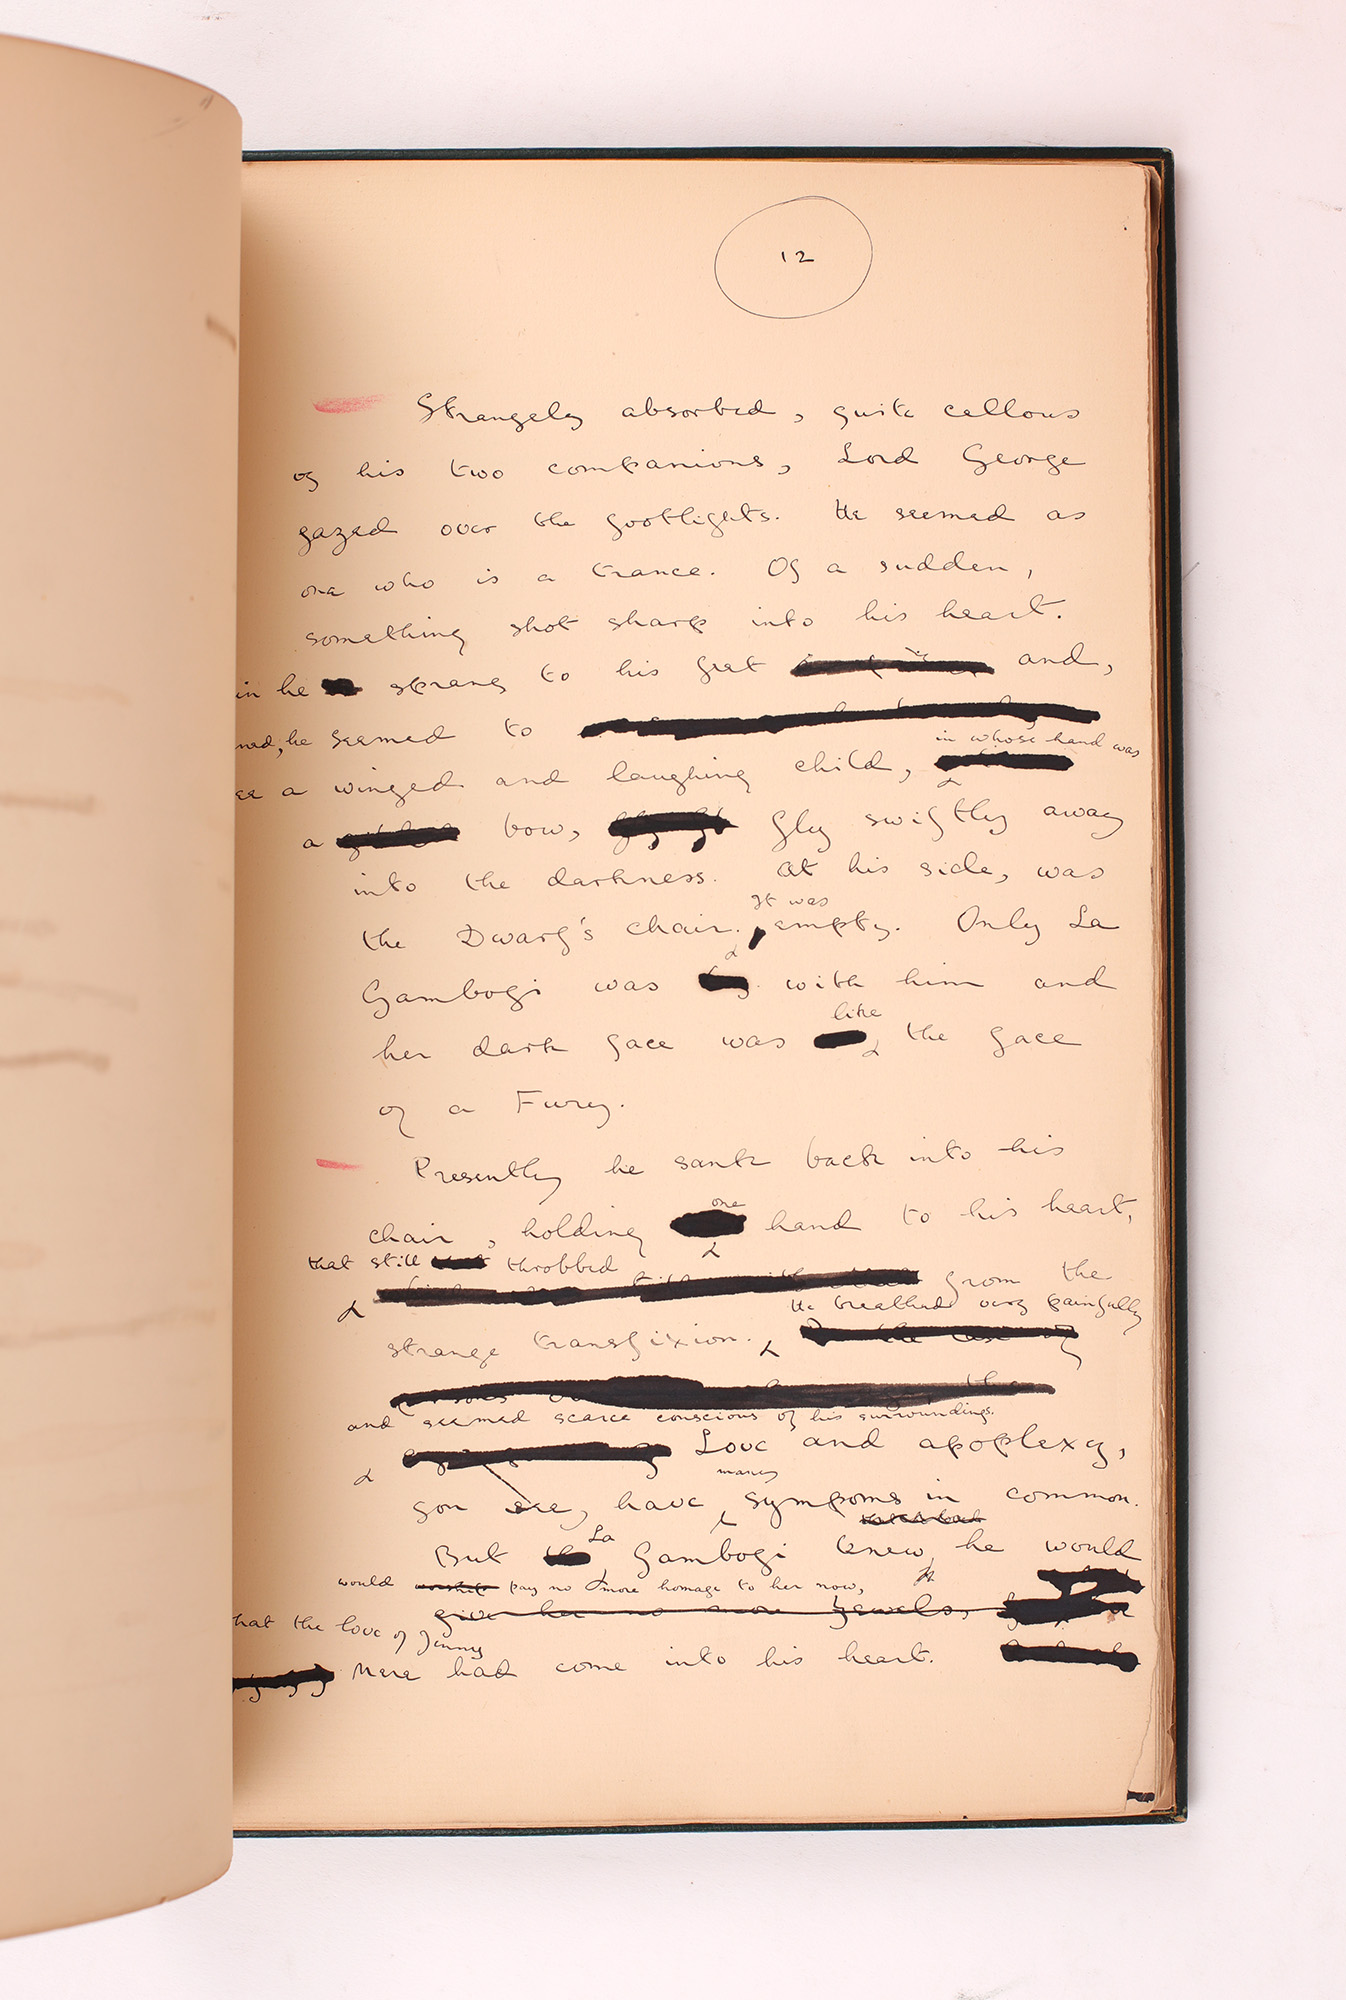 12
Strangely absorbed, quite callous
of his two companions, Lord George
gazed over the footlights. He seemed as
one who is a trance. Of a sudden,
something shot sharp into his heart.
in he sprang to his feet and,
he seemed to
in whose hand was
a winged and laughing child,
a bow, fly swiftly away
into the darkness. At his side, was
It was
the Dwarf's chair. empty. Only La
Gambogi was with him and
like
her dark face was the face
of a Fury.
Presently he sank back into his
one
chair, holding hand to his heart,
that still throbbed
from the
He breathed very painfully
strange transfixion.
and seemed scarce conscious of his surroundings.
Love and apoplexy,
many
you see, have sympoms in common.
La
But Gambogi knew he would
would pay no more homage to her now,
give her no more jewels,
hat the love of Jenny
Mere had come into his heart.